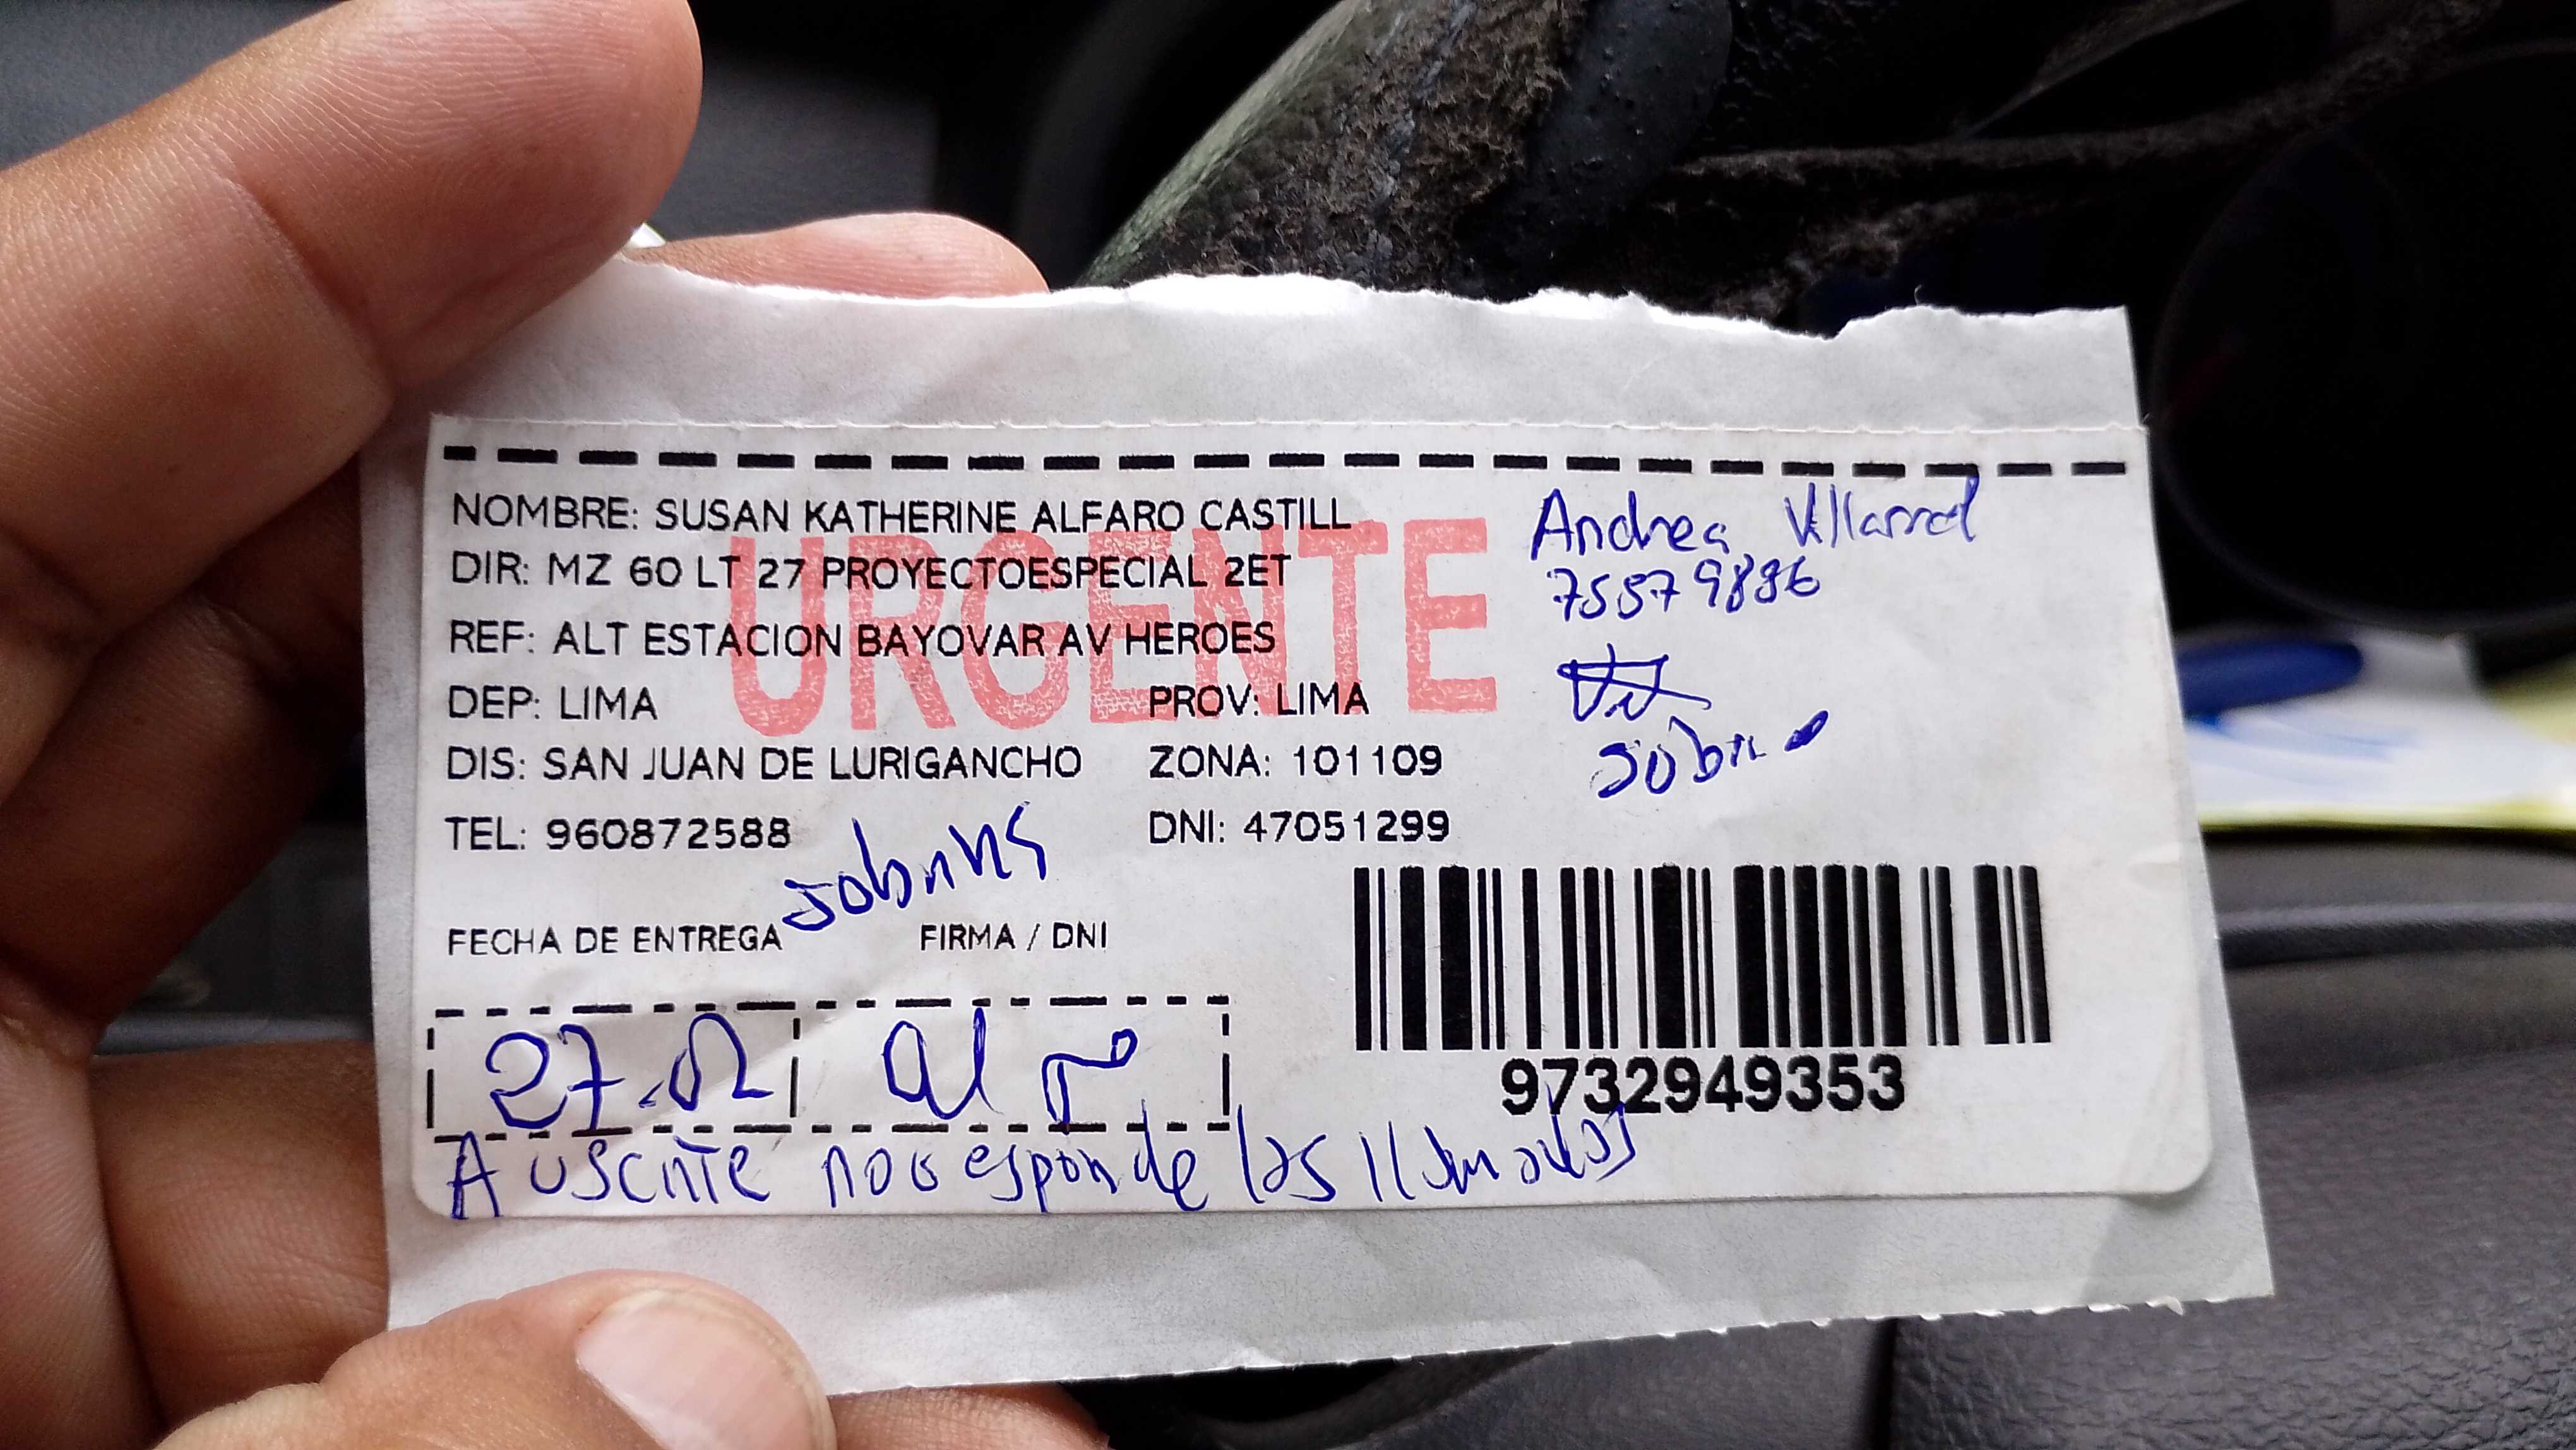 NOMBRE: SUSAN KATHERINE ALFARO CASTILL
DIR: MZ 60 LT 27 PROYECTOESPECIAL 2ET
REF: ALT ESTACION BAYOVAR AV HEROES
DEP: LIMA PROV: LIMA
DIS: SAN JUAN DE LURIGANCHO ZONA: 101109
TEL: 960872588 DNI: 47051299
URGENTE
Andrea
FECHA DE ENTREGA FIRMA / DNI
27
9732949353
Ausente no responde las llamadas